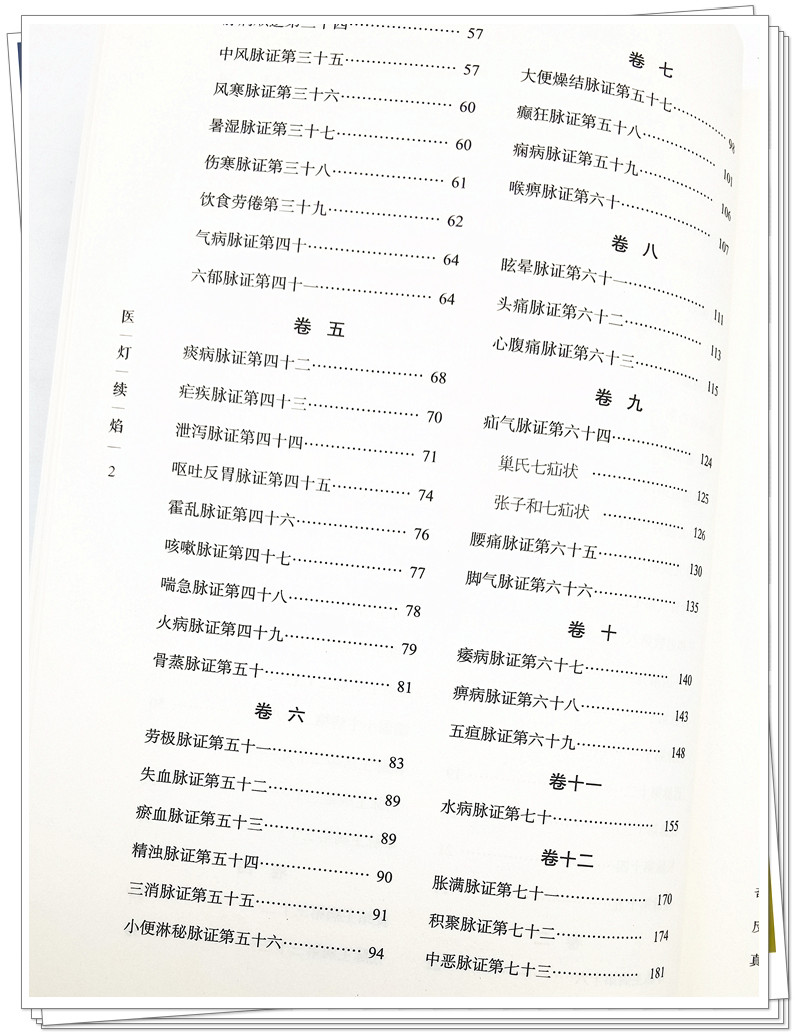 第三十四 57
中风脉证第三十五 57
风寒脉证第三十六 60
暑湿脉证第三十七 60
伤寒脉证第三十八 61
饮食劳倦第三十九 62
气病脉证第四十 64
六郁脉证第四十一 64
卷五
痰病脉证第四十二 68
疟疾脉证第四十三 70
泄泻脉证第四十四 71
呕吐反胃脉证第四十五 74
霍乱脉证第四十六 76
咳嗽脉证第四十七 77
喘急脉证第四十八 78
火病脉证第四十九 79
骨蒸脉证第五十 81
卷六
劳极脉证第五十一 83
失血脉证第五十二 89
瘀血脉证第五十三 89
精浊脉证第五十四 90
三消脉证第五十五 91
小便淋秘脉证第五十六 94
卷七
大便燥结脉证第五十七 98
癫狂脉证第五十八 101
痫病脉证第五十九 106
喉痹脉证第六十 107
卷八
眩晕脉证第六十一 111
头痛脉证第六十二 113
心腹痛脉证第六十三 115
卷九
疝气脉证第六十四 124
巢氏七疝状 125
张子和七疝状 126
腰痛脉证第六十五 130
脚气脉证第六十六 135
卷十
痿病脉证第六十七 140
痹病脉证第六十八 143
五疸脉证第六十九 148
卷十一
水病脉证第七十 155
卷十二
胀满脉证第七十一 170
积聚脉证第七十二 174
中恶脉证第七十三 181
医灯续焰
2